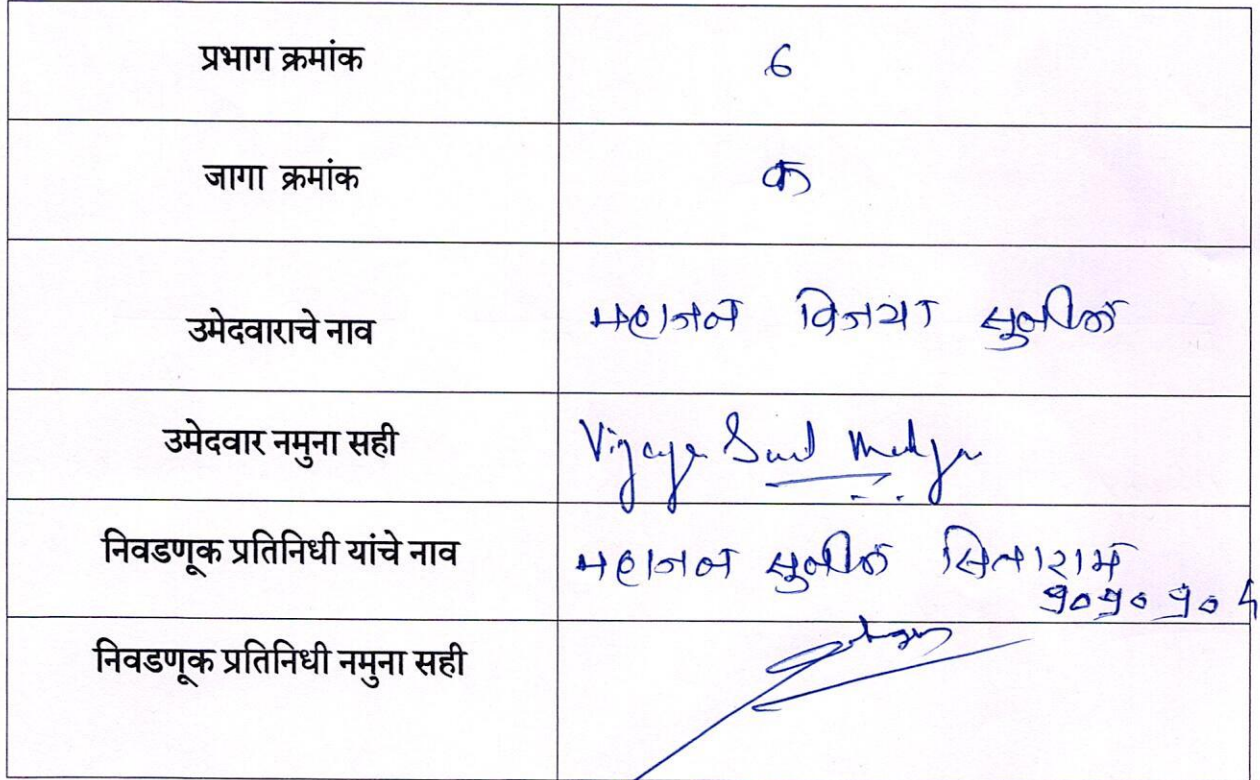 प्रभाग क्रमांक 6
जागा क्रमांक क
उमेदवाराचे नाव महाजन विजया सुनील
उमेदवार नमुना सही Vijaya Sunil Mahajan
निवडणूक प्रतिनिधी यांचे नाव महाजन सुनील सिताराम
निवडणूक प्रतिनिधी नमुना सही